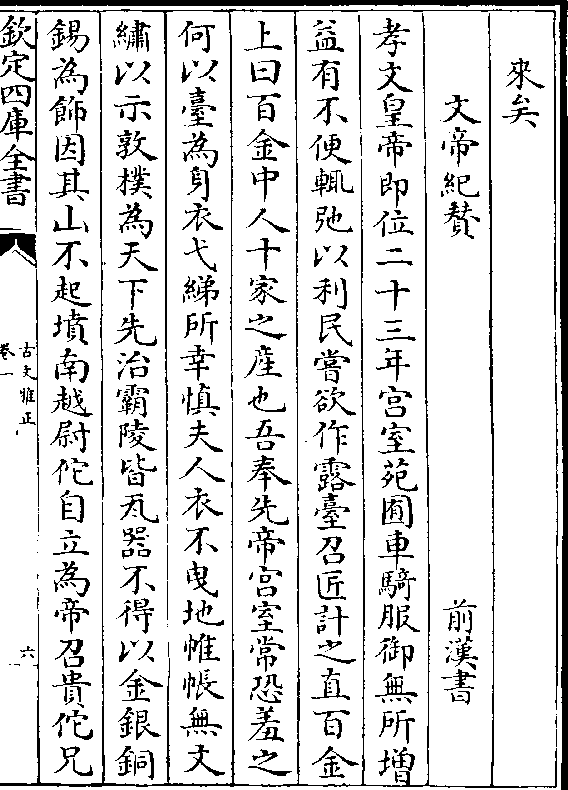 來矣
文帝紀贊 前漢書
孝文皇帝即位二十三年宫室苑囿車騎服御無所增
益有不便輒弛以利民嘗欲作露臺召匠計之直百金
上曰百金中人十家之產也吾奉先帝宫室常恐羞之
何以臺為身衣弋綈所幸慎夫人衣不曳地帷帳無文
繡以示敦樸為天下先治霸陵皆瓦器不得以金銀銅
錫為飾因其山不起墳南越尉佗自立為帝召貴佗兄
欽定四庫全書
古文雅正
卷一
六